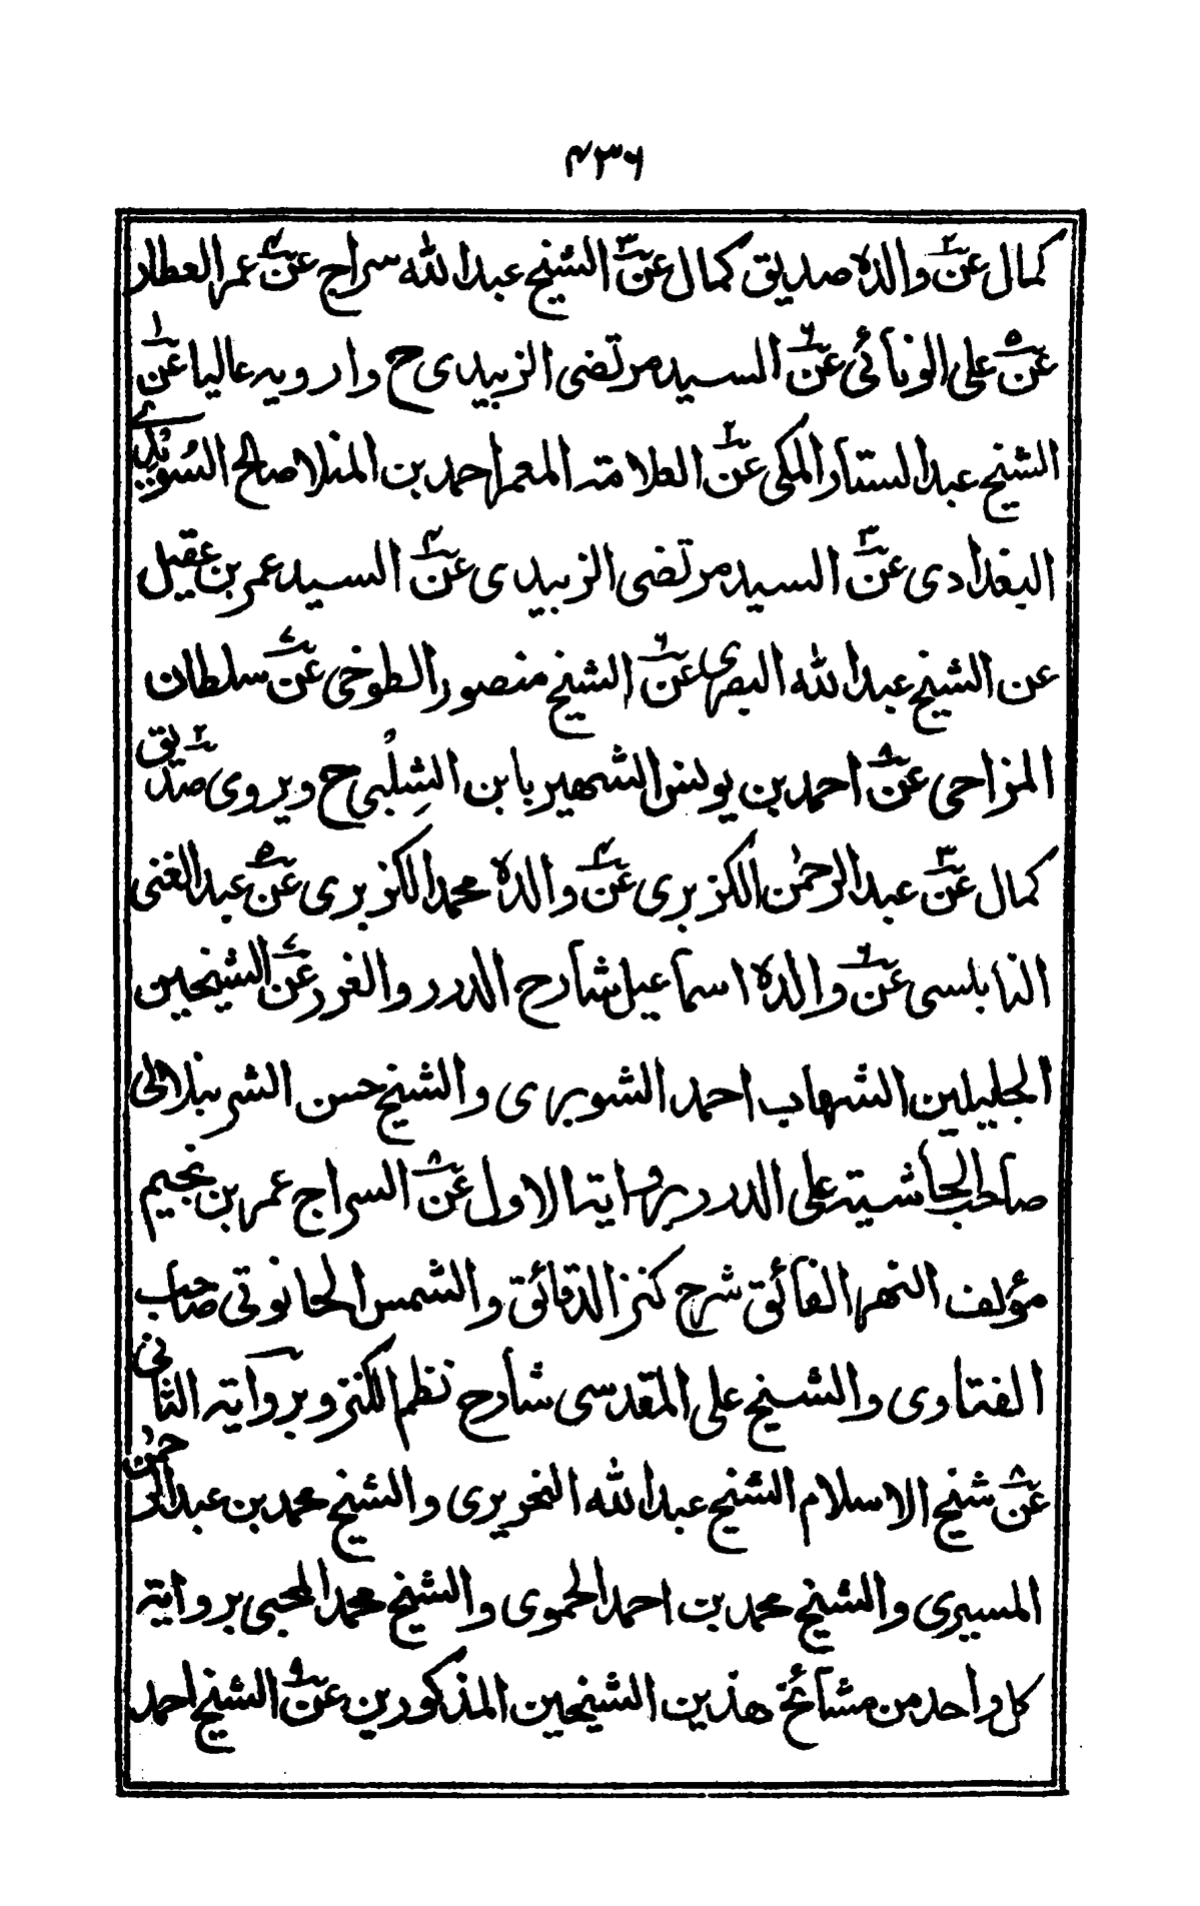 ۴۳۶
كمال عن۲ والده صديق كمال عن۳ الشيخ عبد الله سراج عن۴ عمر العطار
عن۵ علي الونائي عن۶ السيد مرتضى الزبيدى ح وارويه عاليا عن۱
الشيخ عبد الستار المكى عن۲ العلامة المعمر احمد بن المنلا صالح السُّوَيْدِي
البغدادى عن۳ السيد مرتضى الزبيدى عن۴ السيد عمر بن عقيل
عن الشيخ عبد الله البصرى عن۶ الشيخ منصور الطوخى عن۷ سلطان
المزاحى عن۸ احمد بن يونس الشهير بابن الشِلْبي ح ويروى صديق۲
كمال عن۳ عبد الرحمٰن الكزبرى عن۴ والده محمد الكزبرى عن۵ عبد الغنى
النابلسى عن۶ والده اسماعيل شارح الدرر والغرر عن۷ الشيخين
الجليلين الشهاب احمد الشوبرى والشيخ حسن الشرنبلالى
صاحب الحاشية على الدرر برواية الاول عن۸ السراج عمر بن نجيم
مؤلف النهر الفائق شرح كنز الدقائق والشمس الحانوتى صاحب
الفتاوى والشيخ على المقدسى شارح نظم الكنز وبرواية الثانى
عن۸ شيخ الاسلام الشيخ عبد الله النحريرى والشيخ محمد بن عبد الرحمٰن
المسيرى والشيخ محمد بن احمد الحموى والشيخ محمد المحبى برواية
كل واحد من مشائخ هذين الشيخين المذكورين عن۹ الشيخ احمد